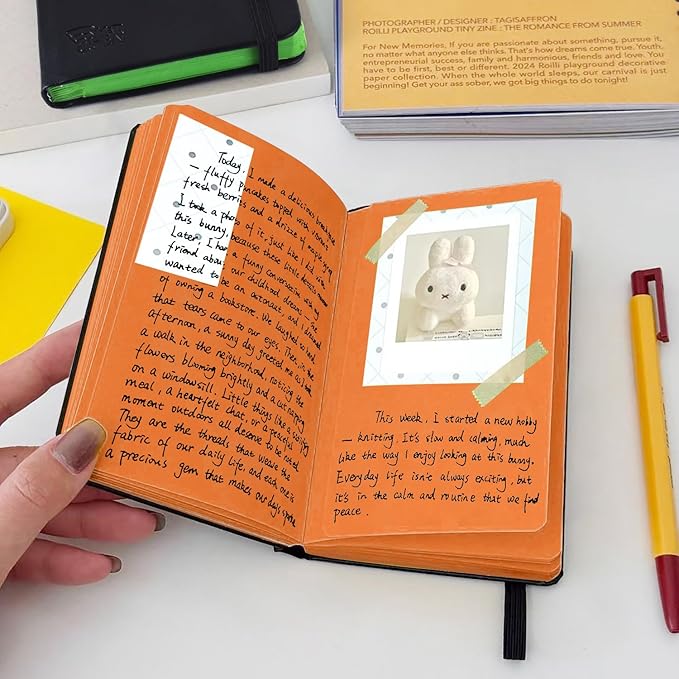 PHOTOGRAPHER / DESIGNER : TAGISAFFRON
ROILLI PLAYGROUND TINY ZINE : THE ROMANCE FROM SUMMER
For New Memories, If you are passionate about something, pursue it,
no matter what anyone else thinks. That's how dreams come true. Youth,
entrepreneurial success, family and harmonious, friends and love. You
have to be first, best or different. 2024 Roilli playground decorative
paper collection. When the whole world sleeps, our carnival is just
beginning! Get your ass sober, we got big things to do tonight!
Today, I made a delicious breakfast
— fluffy pancakes topped with vibrant
fresh berries and a drizzle of maple syrup.
I took a photo of it, just like I did with
this bunny, because these little details
Later, I had a funny conversation with my
friend about our childhood dreams
wanted to be an astronaut, and I dreamed
of owning a bookstore. We laughed so hard
that tears came to our eyes. Then, in the
afternoon, a sunny day greeted me as I took
a walk in the neighborhood, noticing the
flowers blooming brightly and a cat napping
on a windowsill. Little things like a
meal, a heartfelt chat, or a peaceful
moment outdoors all deserve to be noted.
They are the threads that weave the
fabric of our daily life, and each one is
a precious gem that makes our days
This week, I started a new hobby
— knitting. It's slow and calming, much
like the way I enjoy looking at this bunny.
Everyday life isn't always exciting, but
it's in the calm and routine that we find
peace.